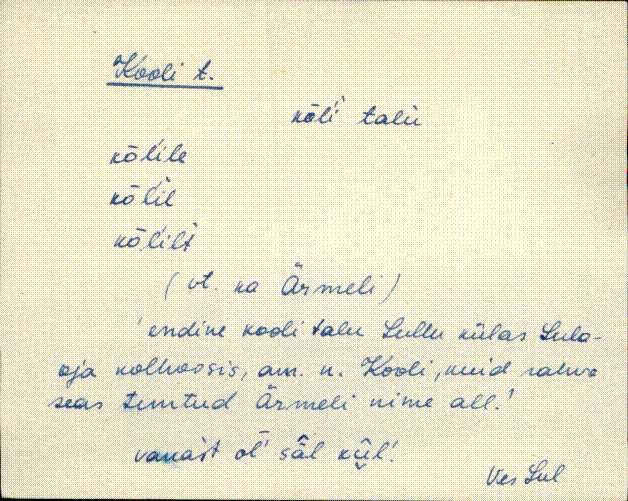 Kooli t.
kōl'i talu
kōl'ile
kōl'il
kōl'ilt
(vt. ka Ärmeli)
'endine kooli talu Sullu külas Sula-
oja kolhoosis, am. n. Kooli, kuid rahva
seas tuntud Ärmeli nime all.'
vanast ol' sāl kūl'.
Ves Sul